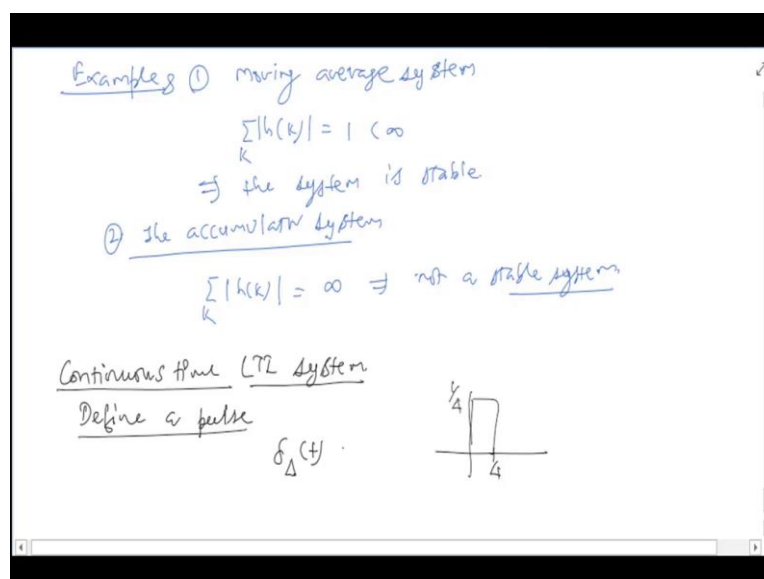 Examples ① moving average system
∑|h(k)| = 1 < ∞
K
⇒ the system is stable
② The accumulator system
∑|h(k)| = ∞ ⇒ not a stable system
K
Continuous time LTI system
Define a pulse
δ_Δ(t)
1/Δ
Δ